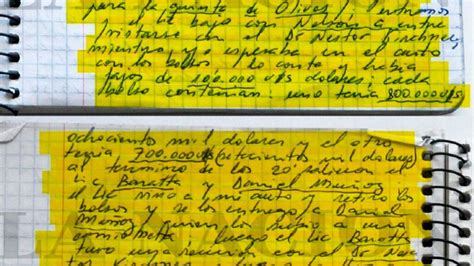 para la quinta de Olivos / entramos
y el lic bajo con Nelson a entre
vistarse con el Dr Nestor Kirchner
mientras yo esperaba en el auto
con los bolsos / lo conte y habia
fajos de 100.000 U$S dolares; cada
bolso contenian: uno tenia 800.000 U$S
ochocientos mil dolares y el otro
tenia 700.000 U$S (setecientos mil dolares)
al termino de los 20' salieron el
lic Baratta y Daniel Muñoz
el lic vino a mi auto y retiro los
bolsos y se los entrego a Daniel
Muñoz quien los subio a una
camioneta; luego el lic Baratta
tuvo una reunion con el Dr Nes
LA NACION